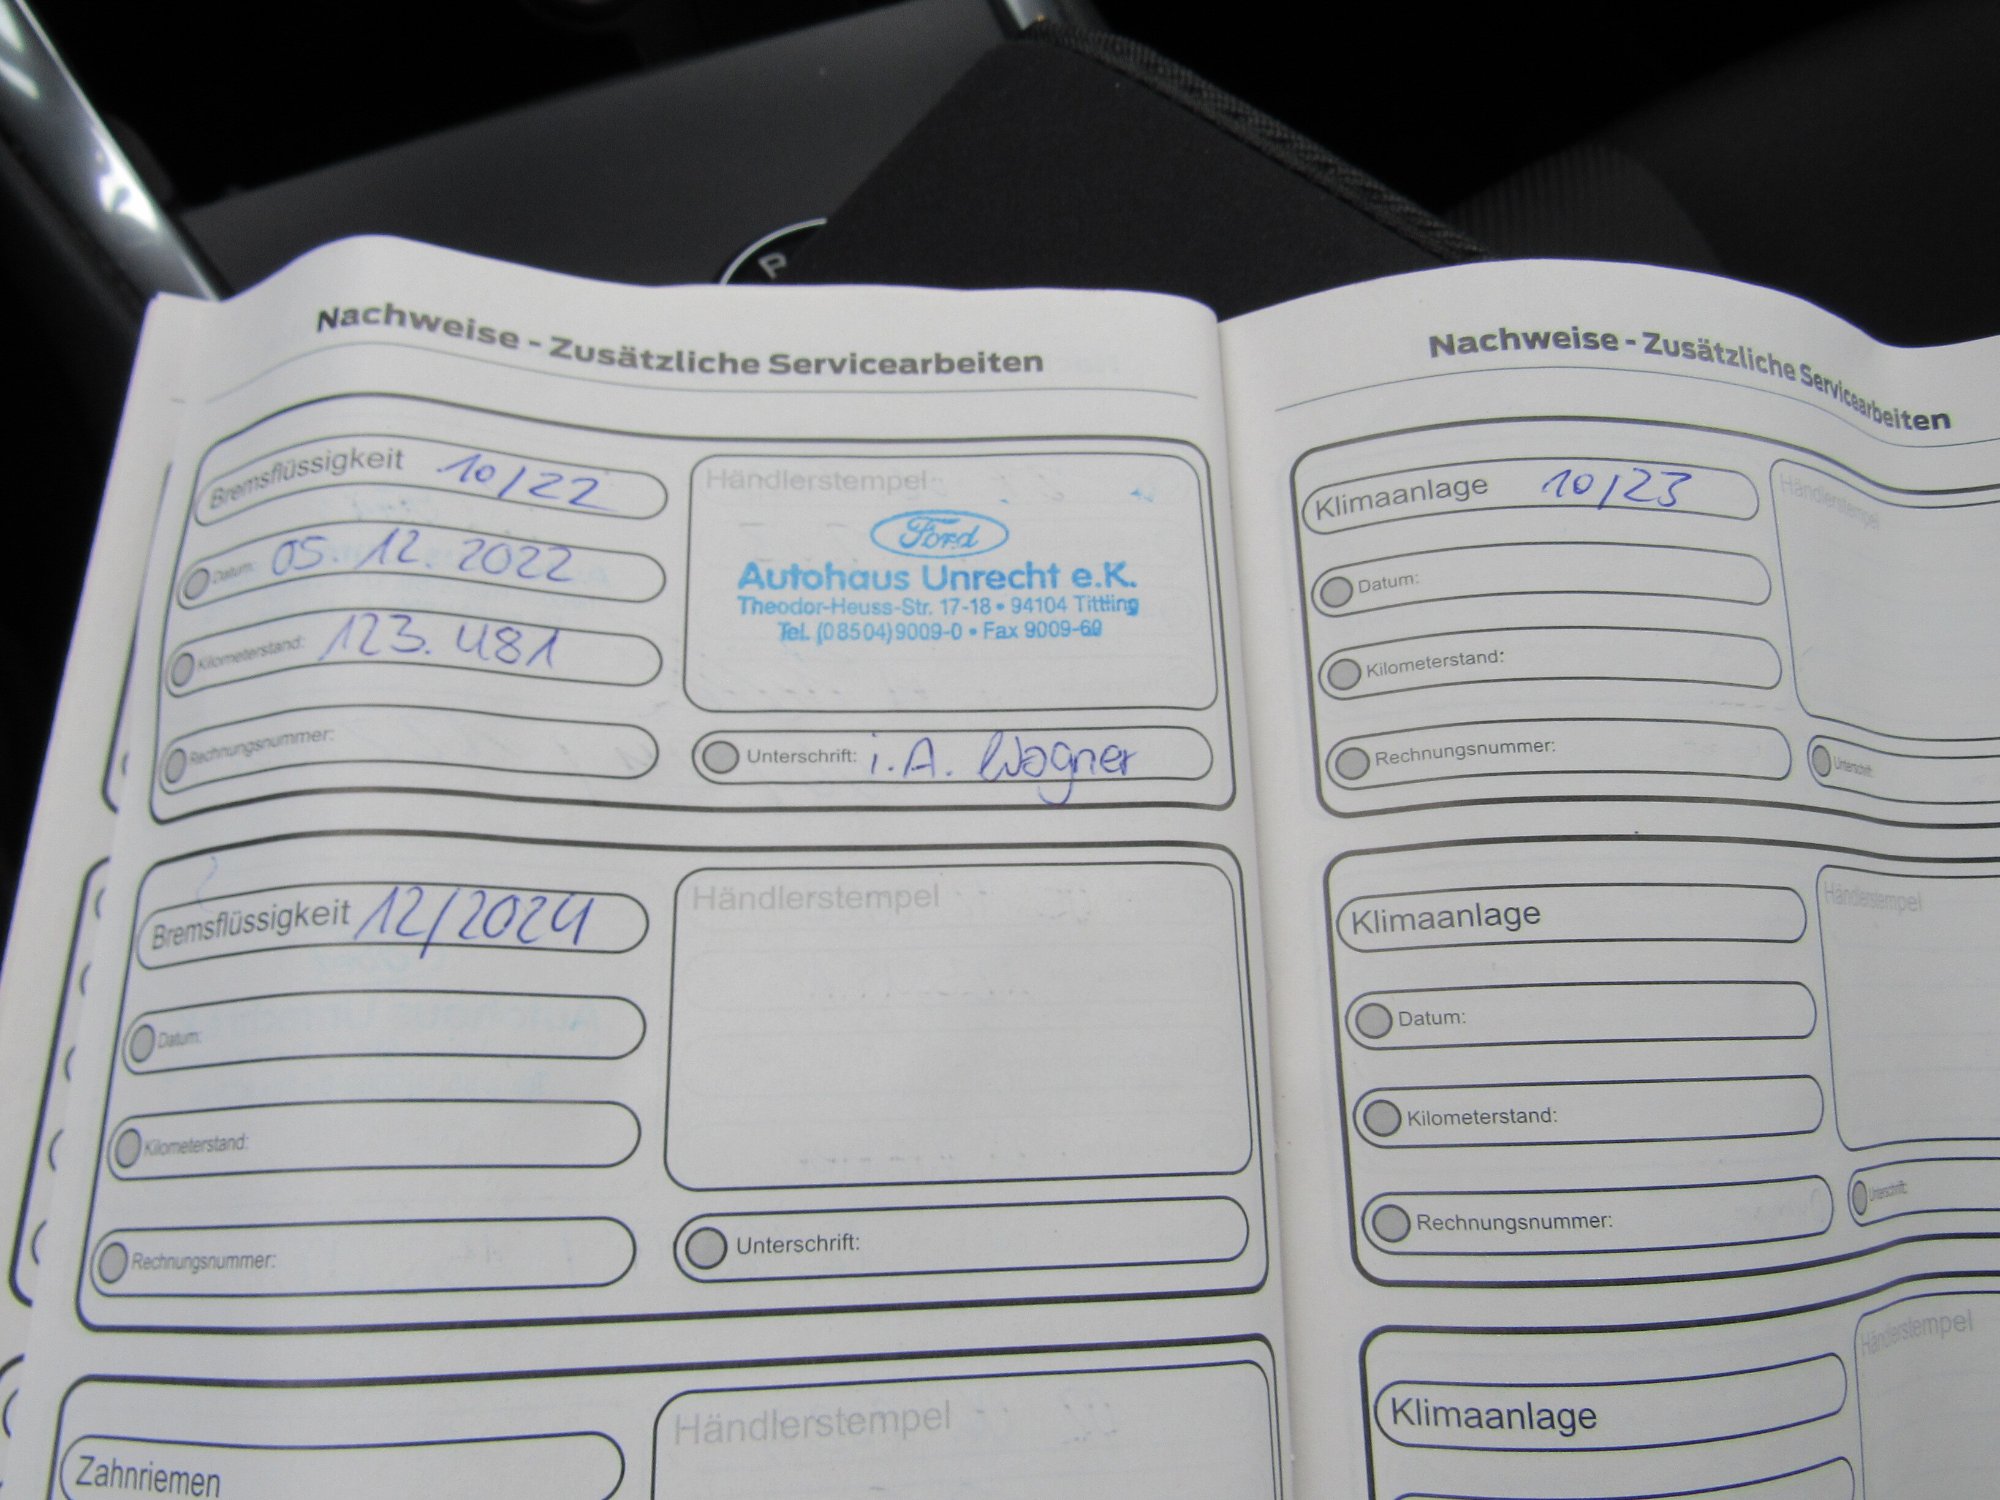 P
Nachweise - Zusätzliche Servicearbeiten
Bremsflüssigkeit 10/22
Datum: 05.12.2022
Kilometerstand: 123.481
Rechnungsnummer:
Händlerstempel
Ford
Autohaus Unrecht e.K.
Theodor-Heuss-Str. 17-18 • 94104 Tittling
Tel. (08504)9009-0 • Fax 9009-60
Unterschrift: i.A. Wagner
Bremsflüssigkeit 12/2024
Datum:
Kilometerstand:
Rechnungsnummer:
Händlerstempel
Unterschrift:
Zahnriemen
Händlerstempel
Nachweise - Zusätzliche Servicearbeiten
Klimaanlage 10/23
Datum:
Kilometerstand:
Rechnungsnummer:
Händlerstempel
Unterschrift:
Klimaanlage
Datum:
Kilometerstand:
Rechnungsnummer:
Händlerstempel
Unterschrift:
Klimaanlage
Händlerstempel